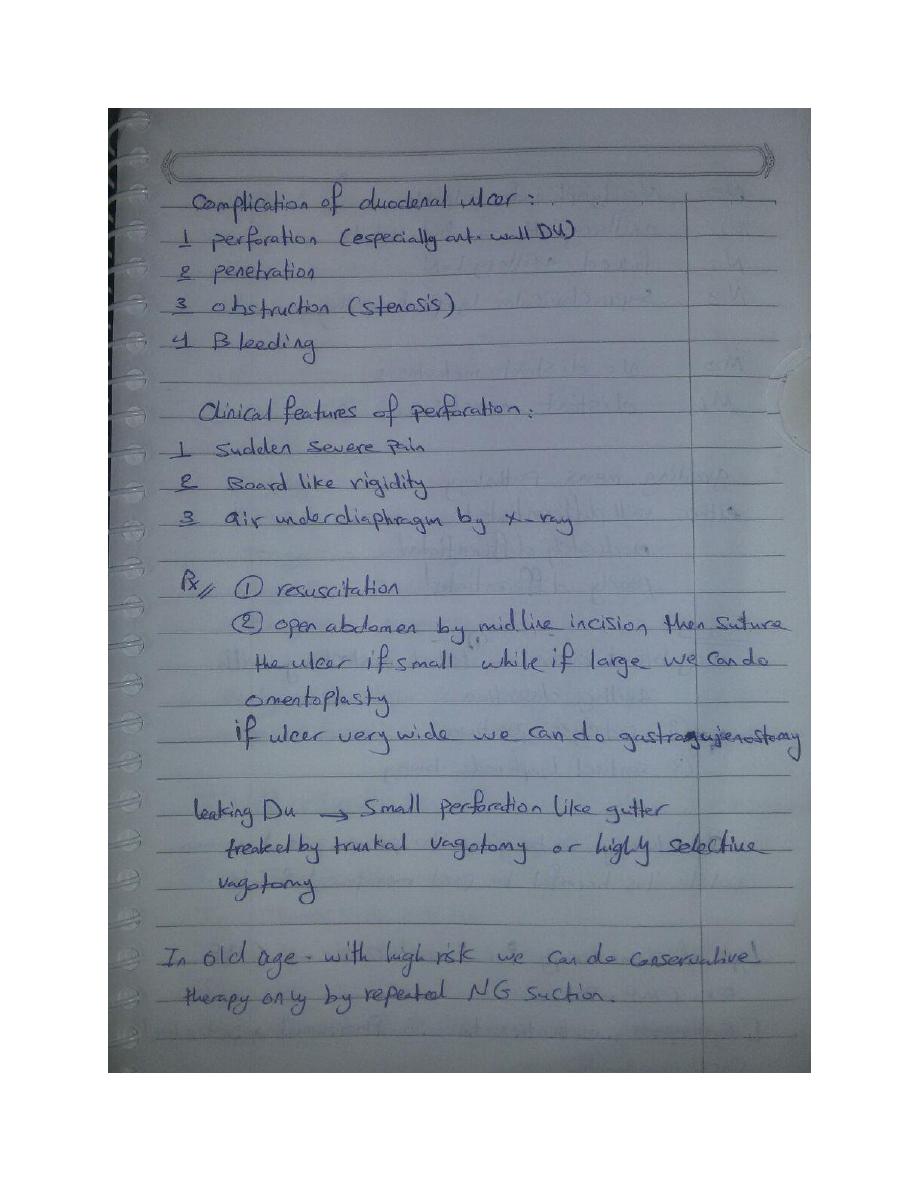 Complication of duodenal ulcer :
1 perforation (especially ant. wall DU)
2 penetration
3 obstruction (stenosis)
4 Bleeding
Clinical features of perforation :
1 Sudden severe pain
2 Board like rigidity
3 air under diaphragm by x-ray
Rx // ① resuscitation
② open abdomen by midline incision then suture
the ulcer if small while if large we can do
omentoplasty
if ulcer very wide we can do gastrogujenostomy
leaking Du → Small perforation like gutter
treated by trunkal vagotomy or highly selective
vagotomy
In old age - with high risk we can do conservative
therapy only by repeated NG suction.